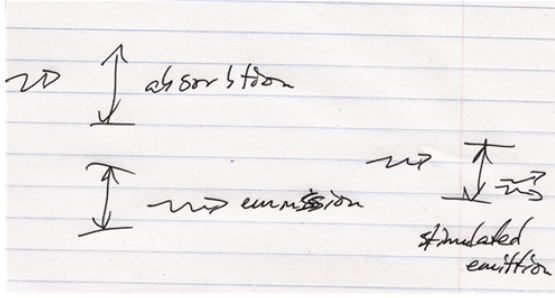 absorbtion
emmission
stimulated
emittion